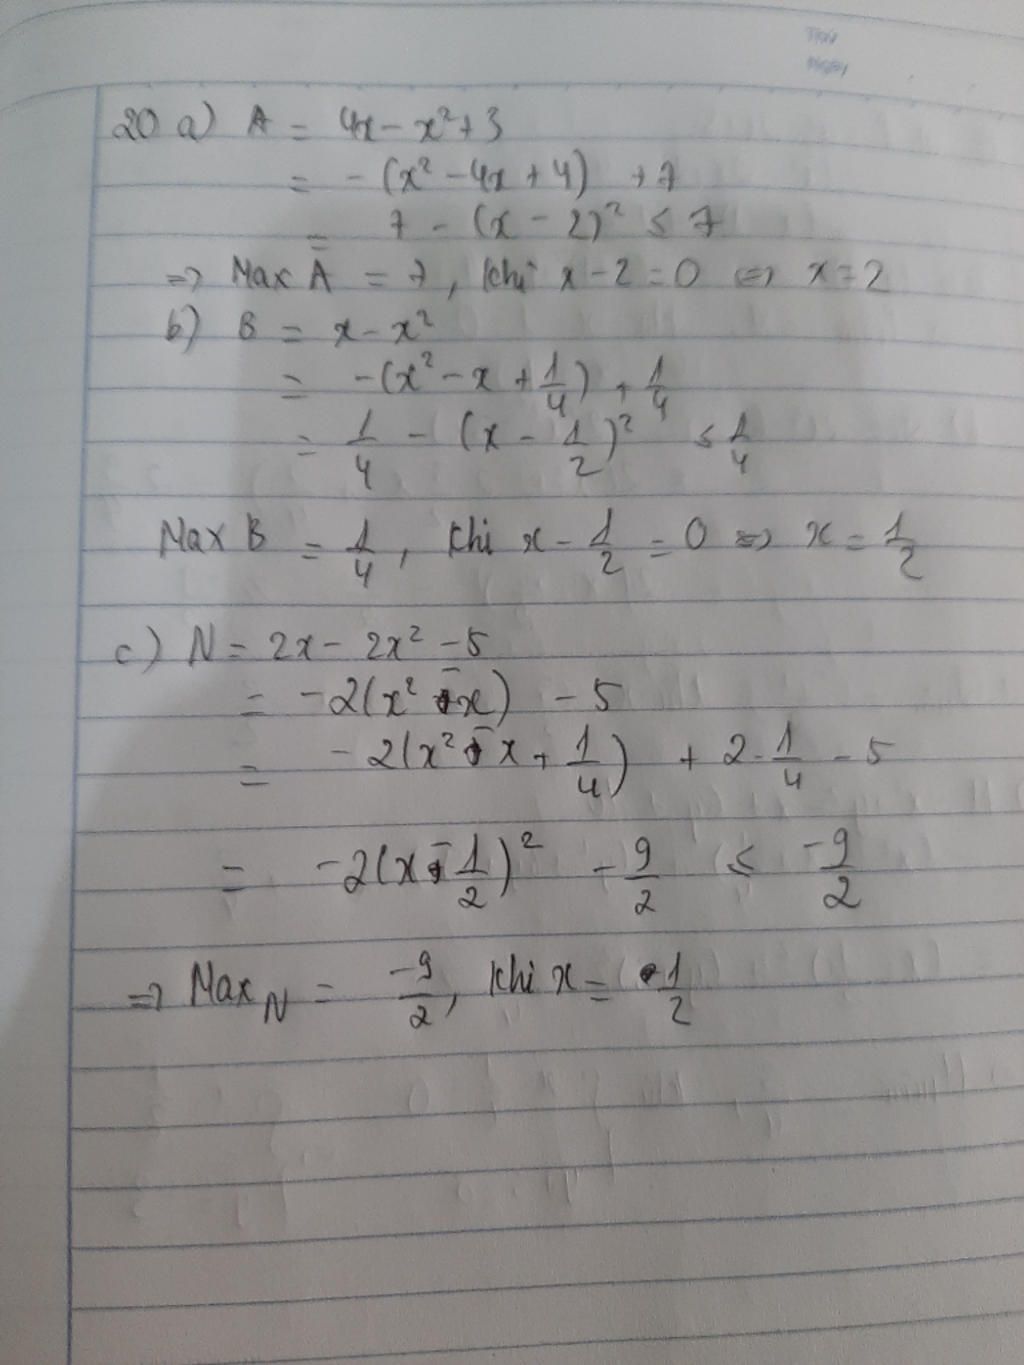 Thứ
Ngày
20 a) A = 4x - x² + 3
= - (x² - 4x + 4) + 7
= 7 - (x - 2)² ≤ 7
=> Max A = 7, khi x - 2 = 0 <=> x = 2
b) B = x - x²
= -(x² - x + 1/4) + 1/4
= 1/4 - (x - 1/2)² ≤ 1/4
Max B = 1/4, khi x - 1/2 = 0 => x = 1/2
c) N = 2x - 2x² - 5
= -2(x² - x) - 5
= -2(x² - x + 1/4) + 2.1/4 - 5
= -2(x - 1/2)² - 9/2 ≤ -9/2
=> Max N = -9/2, khi x = 1/2